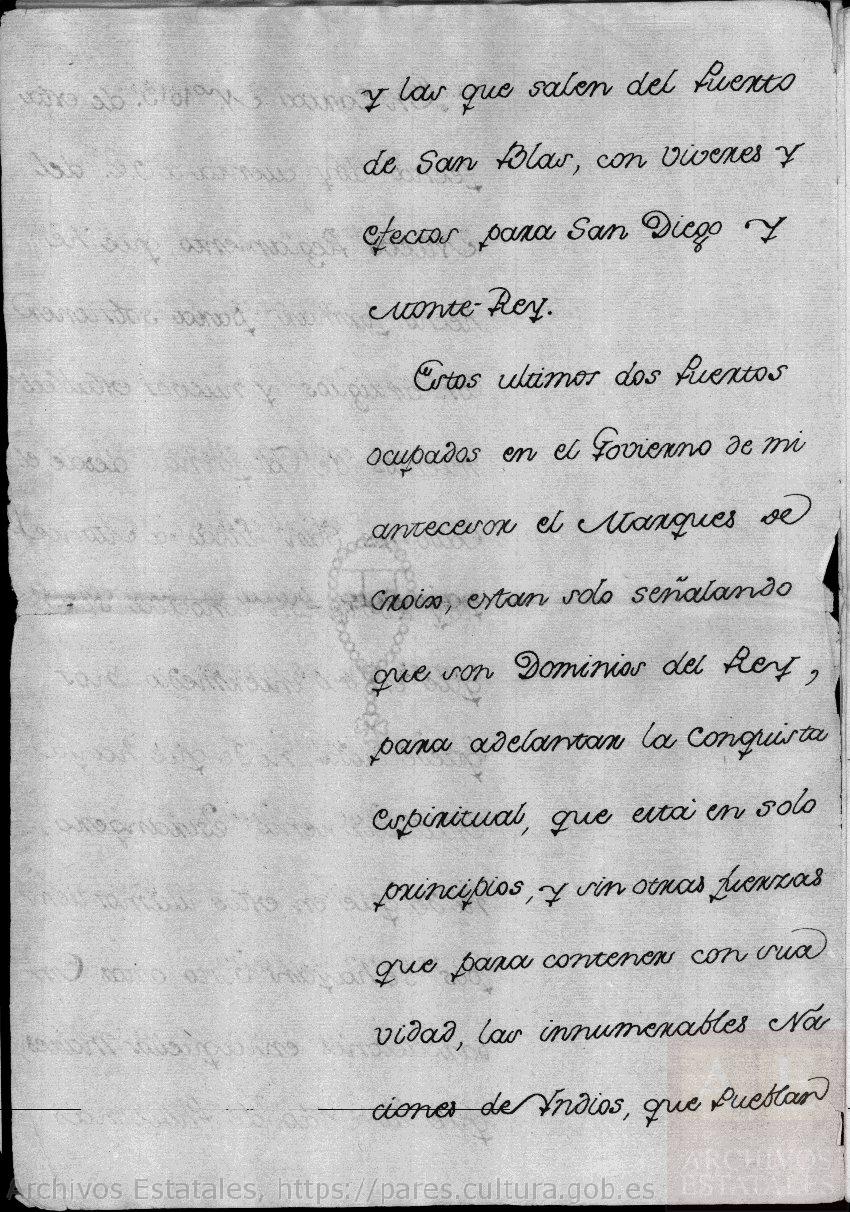 y las que salen del Puerto
de San Blas, con viveres y
efectos para San Diego y
Monte-Rey.
Estos ultimos dos Puertos
ocupados en el Govierno de mi
antecesor el Marques de
Croix, estan solo señalando
que son Dominios del Rey,
para adelantar la Conquista
Espiritual, que está en solo
principios, y sin otras fuerzas
que para contener con sua
vidad, las innumerables Na
ciones de Yndios, que Pueblan
Archivos Estatales, https://pares.cultura.gob.es
ARCHIVOS
ESTATALES